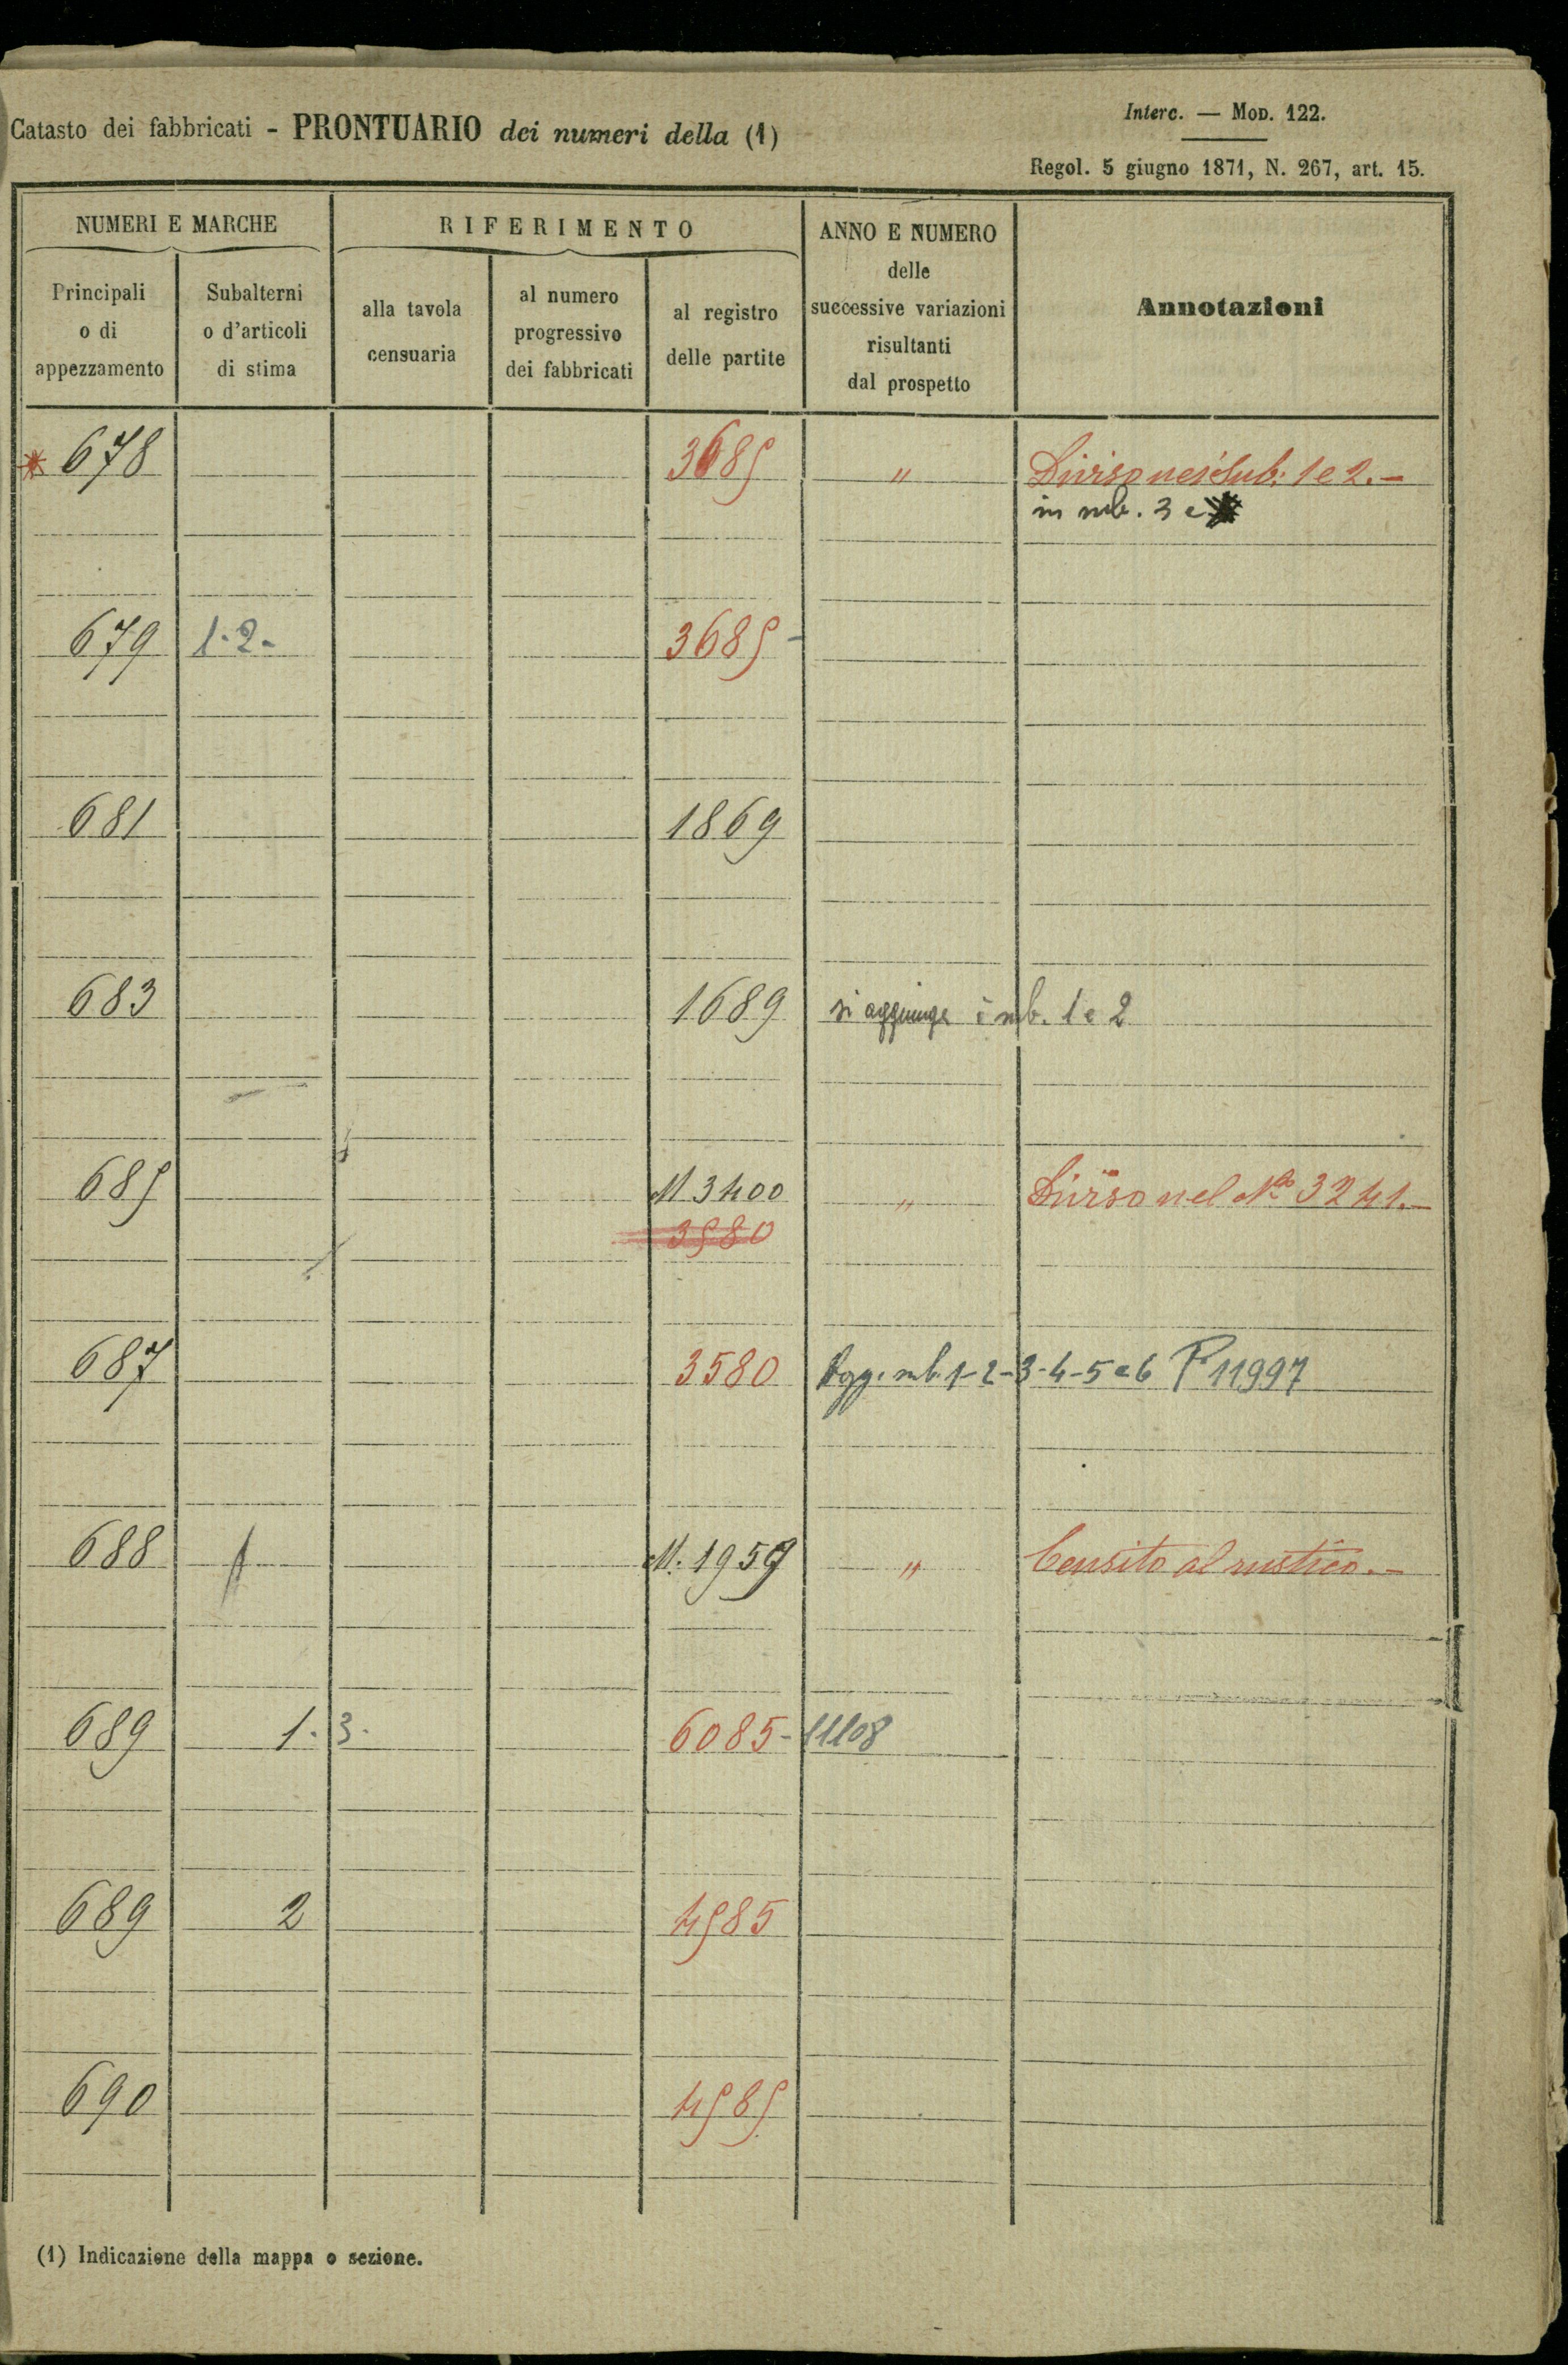 Catasto dei fabbricati - PRONTUARIO dei numeri della (1)
Interc. — Mod. 122.
Regol. 5 giugno 1871, N. 267, art. 15.
NUMERI E MARCHE
RIFERIMENTO
ANNO E NUMERO
delle
successive variazioni
risultanti
dal prospetto
Annotazioni
Principali
o di
appezzamento
Subalterni
o d'articoli
di stima
alla tavola
censuaria
al numero
progressivo
dei fabbricati
al registro
delle partite
* 678 3685 " Diviso nei Sub: 1 e 2. -
in sub. 3 e
679 1-2- 3685 -
681 1869
683 1689 si aggiunge i sub. 1 e 2
685 M 3400 " Diviso nel No 3241. -
3580
687 3580 Agg. sub. 1-2-3-4-5 e 6 P 11997
688 M. 1959 " Censito al rustico. -
689 1. 3. 6085 - 11108
689 2 4585
690 4585
(1) Indicazione della mappa o sezione.